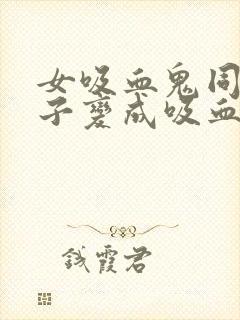 女吸血鬼同
子变成吸血
钱霞君